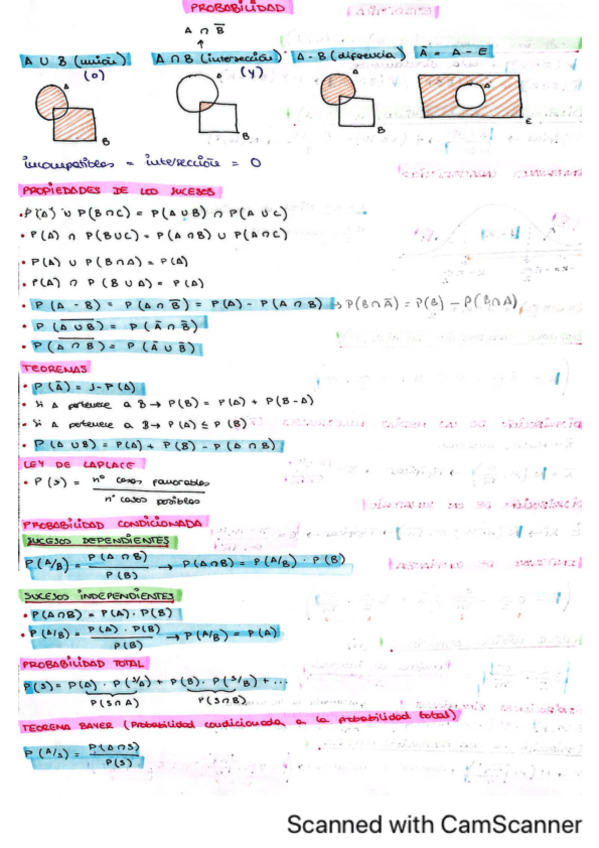 PROBABILIDAD
A ∩ B̅
↑
A ∪ B (unión) A ∩ B (intersección) A - B (diferencia) A̅ = A - E
(o) (y)
A A A
B B B E
incompatibles = intersección = 0
PROPIEDADES DE LOS SUCESOS
• P(A) ∪ P(B∩C) = P(A∪B) ∩ P(A∪C)
• P(A) ∩ P(B∪C) = P(A∩B) ∪ P(A∩C)
• P(A) ∪ P(B∩A) = P(A)
• P(A) ∩ P(B∪A) = P(A)
• P(A - B) = P(A∩B̅) = P(A) - P(A∩B) → P(B∩A̅) = P(B) - P(B∩A)
• P(A̅∪̅B̅) = P(A̅∩B̅)
• P(A̅∩̅B̅) = P(A̅∪B̅)
TEOREMAS
• P(A̅) = 1 - P(A)
• Si A pertenece a B → P(B) = P(A) + P(B-A)
• Si A pertenece a B → P(A) ≤ P(B)
• P(A∪B) = P(A) + P(B) - P(A∩B)
LEY DE LAPLACE
• P(S) = nº casos favorables / nº casos posibles
PROBABILIDAD CONDICIONADA
SUCESOS DEPENDIENTES
P(A/B) = P(A∩B) / P(B) → P(A∩B) = P(A/B) · P(B)
SUCESOS INDEPENDIENTES
• P(A∩B) = P(A) · P(B)
• P(A/B) = P(A) · P(B) / P(B) → P(A/B) = P(A)
PROBABILIDAD TOTAL
P(S) = P(A) · P(S/A) + P(B) · P(S/B) + ...
P(S∩A) P(S∩B)
TEOREMA BAYER (Probabilidad condicionada a la probabilidad total)
P(A/S) = P(A∩S) / P(S)
Scanned with CamScanner